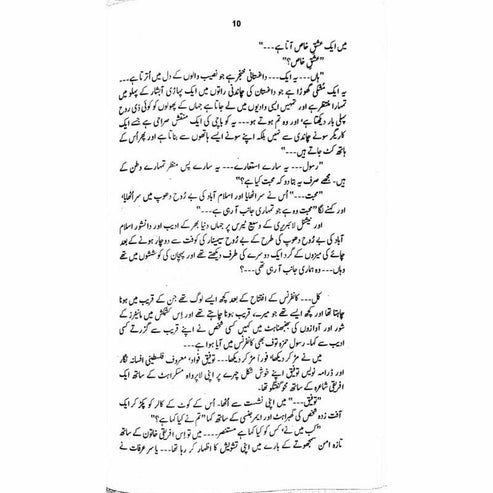 10
میں ایک عشقِ خاص آتا ہے۔۔۔"
"عشقِ خاص؟"
"ہاں۔۔۔ یہ ایک۔۔۔ داغستانی خنجر ہے جو نصیب والوں کے دل میں اُترتا ہے۔
یہ ایک مُشکی گھوڑا ہے جو داغستان کی چاندنی راتوں میں ایک پہاڑی آبشار کے پہلو میں
تمہارا منتظر ہے اور تمہیں ایسی وادیوں میں لے جاتا ہے جہاں کے پھولوں کو کوئی ذی روح
پہلی بار دیکھتا ہے' اور وہ تم ہوتے ہو۔۔۔ یہ کوباچی کی ایک منقش صراحی ہے جسے ایک
کاریگر سونے چاندی سے نہیں بلکہ اپنے سونے ایسے ہاتھوں سے بناتا ہے اور پھر اُس کے
ہاتھ کٹ جاتے ہیں۔۔۔"
"رسول۔۔۔ یہ سارے استعارے۔۔۔ یہ سارے پس منظر تمہارے وطن کے
ہیں۔ مجھے صرف یہ بتا دو کہ محبت کیا ہے؟"
"محبت۔۔۔" اُس نے سر اٹھایا اور اسلام آباد کی بے رُوح دھوپ میں سر اٹھایا'
اور کہنے لگا "محبت وہ ہے جو تمہاری جانب آ رہی ہے۔۔۔"
اور نیشنل لائبریری کے وسیع ٹیرس پر جہاں دنیا بھر کے ادیب اور دانشور اسلام
آباد کی بے رُوح دھوپ کی طرح کے بے رُوح سیمینار کی کوفت سے دوچار ہونے کے بعد
چائے کی میزوں کے گرد ایک دوسرے کی طرف دیکھتے تھے اور پہچان کی کوششوں میں تھے
وہاں۔۔۔ وہ ہماری جانب آ رہی تھی۔۔۔؟
کل۔۔۔ کانفرنس کے افتتاح کے بعد کچھ ایسے لوگ تھے جن کے قریب میں ہونا
چاہتا تھا اور کچھ ایسے تھے جو میرے قریب ہونا چاہتے تھے اور اِس کشمکش میں مانیٹرز کے
شور اور آوازوں کی بھنبھناہٹ میں کہیں کسی شخص نے اپنے قریب سے گزرتے کسی
ادیب سے کہا۔ رسول حمزہ توف بھی کانفرنس میں آیا ہوا ہے۔
میں نے مڑ کر دیکھا' فوراً مڑ کر دیکھا۔۔۔ توفیق فواد' معروف فلسطینی افسانہ نگار
اور ڈرامہ نویس توفیق اپنے خوش شکل چہرے پر اپنی لاپرواہ مسکراہٹ کے ساتھ ایک
افریقی شاعرہ کے ساتھ محوِ گفتگو تھا۔
"توفیق۔۔۔" میں اپنی نشست سے اُٹھا۔ اُس کے کوٹ کے کالر کو پکڑ کر ایک
آفت زدہ شخص کی گھبراہٹ اور ایمرجنسی کے ساتھ کہا "تم نے کیا کہا ہے؟"
"کب میں نے' کس کو کیا کہا ہے مستنصر۔۔۔ میں تو اِس افریقی خاتون کے ساتھ
تازہ امن سمجھوتے کے بارے میں اپنی تشویش کا اظہار کر رہا تھا۔۔۔ یاسر عرفات نے